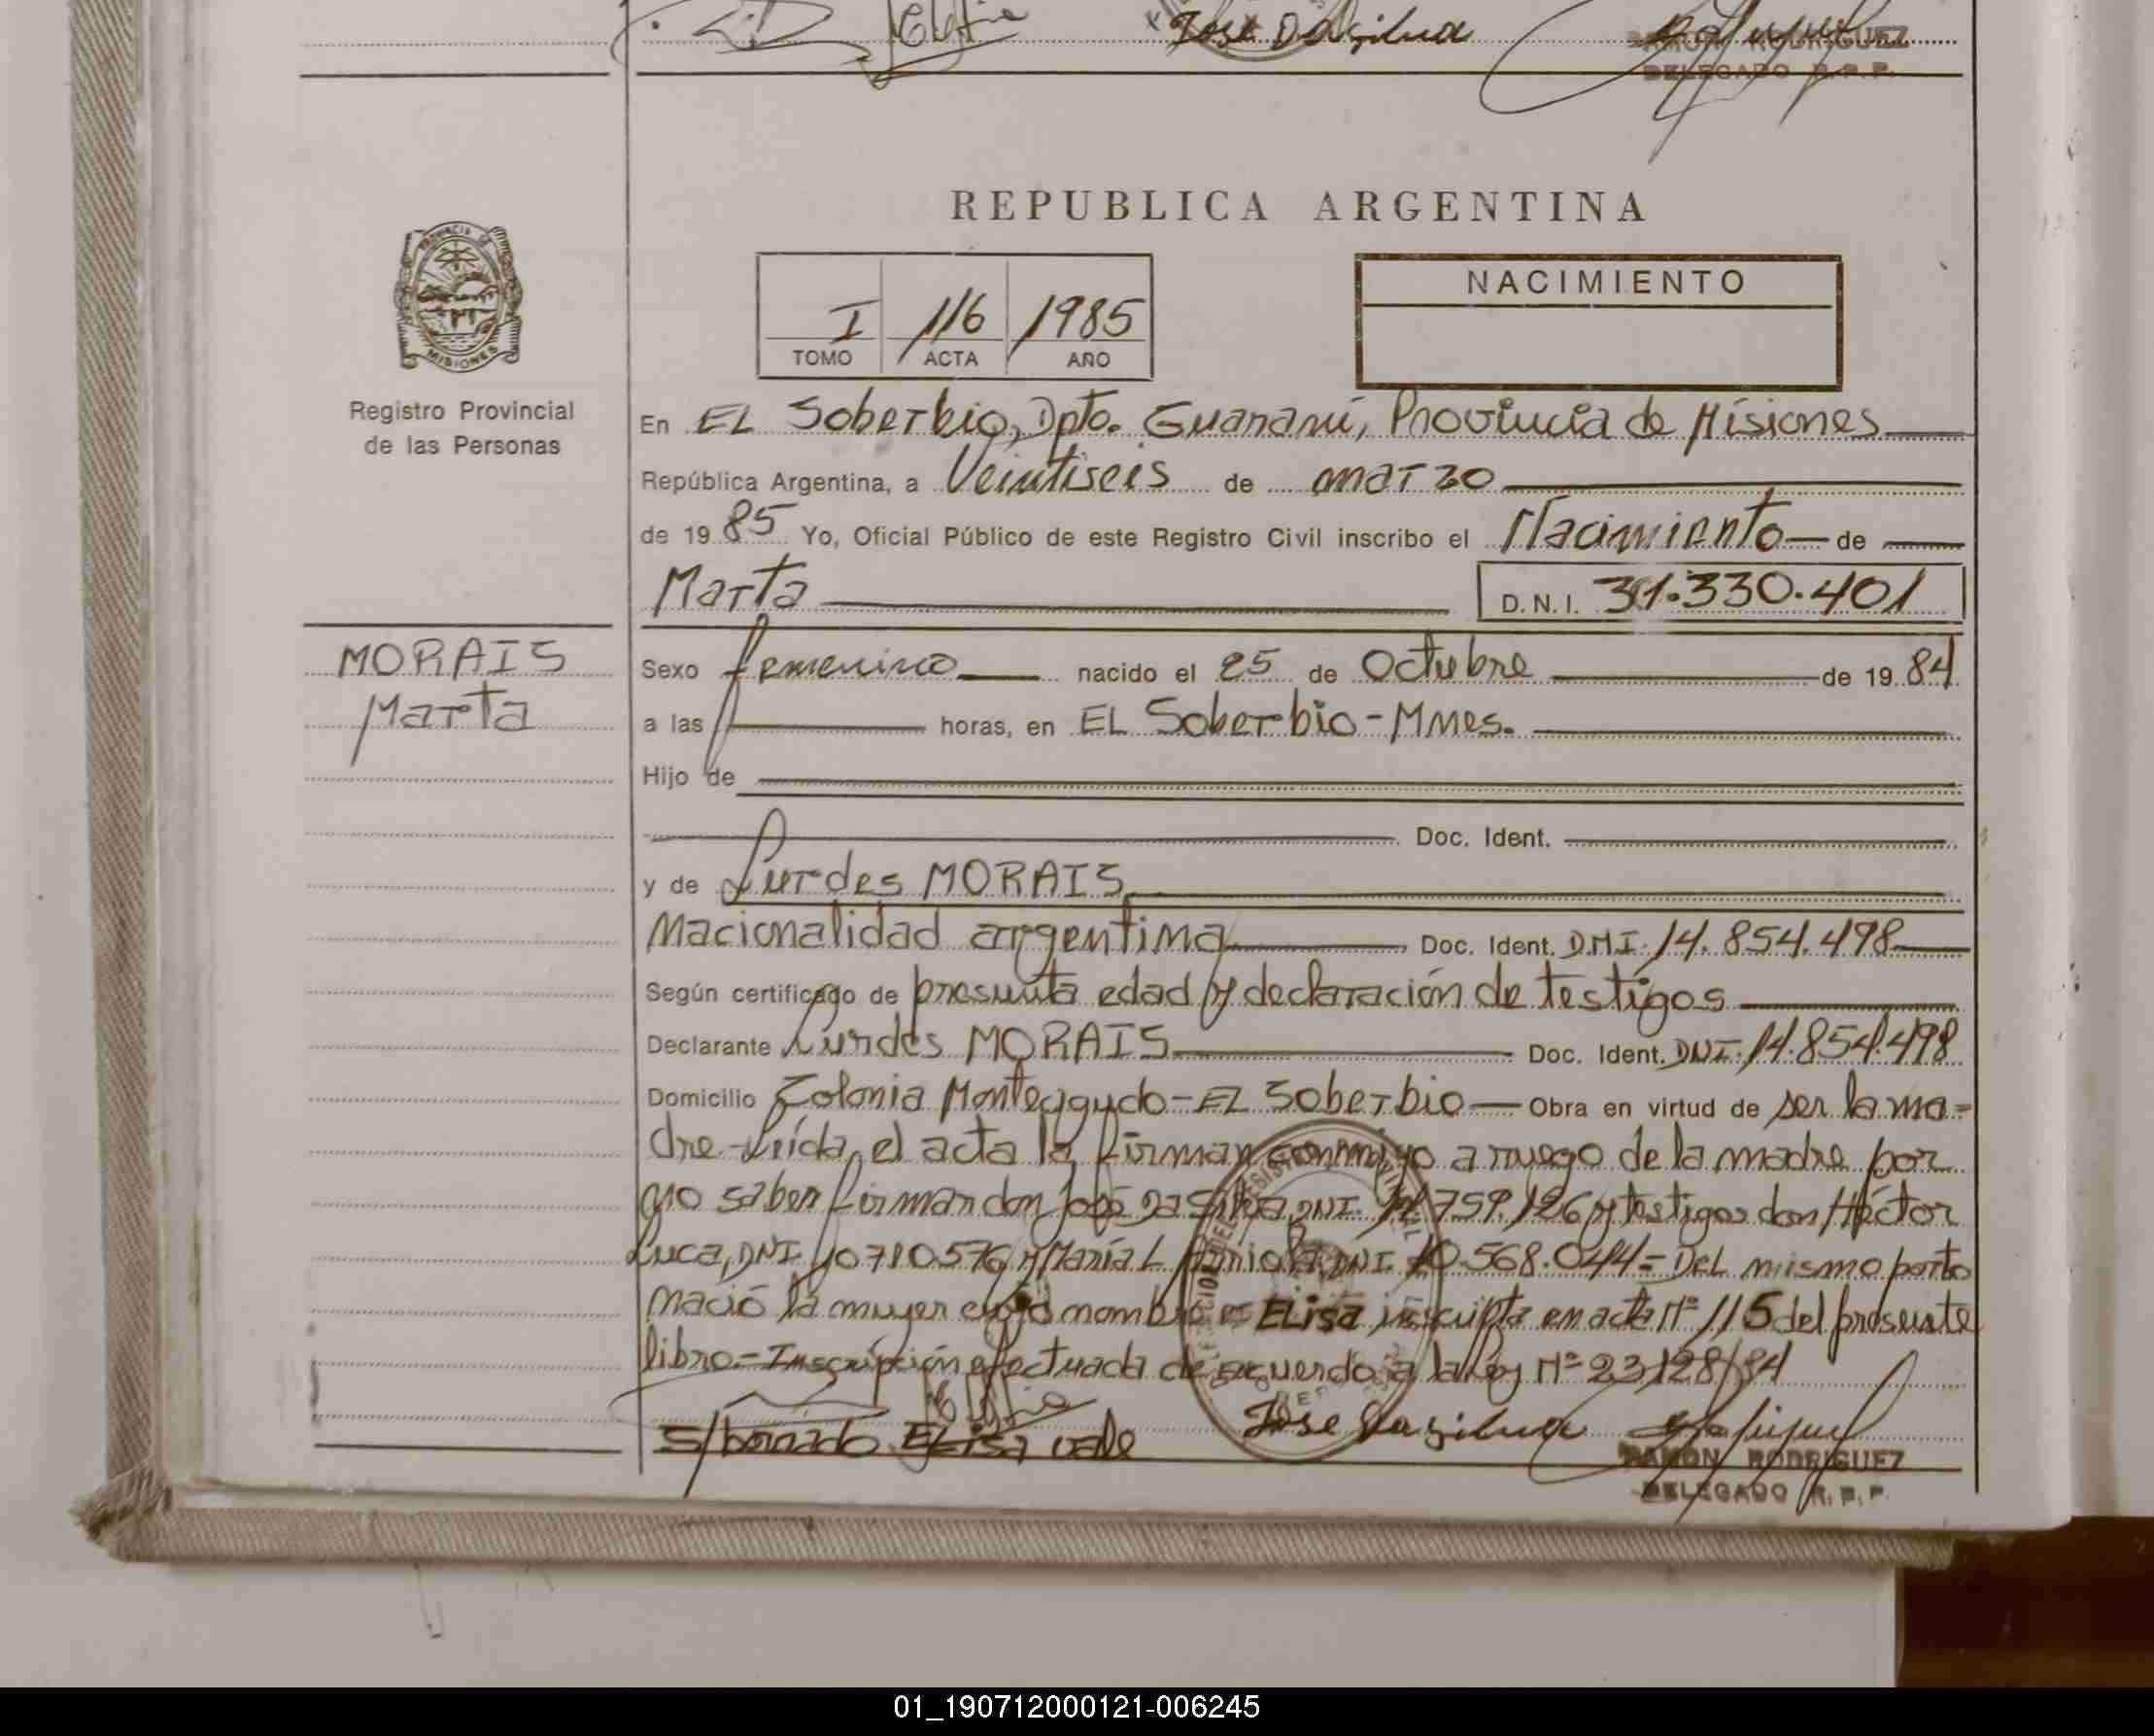 Jose Dasilva
RAMON RODRIGUEZ
DELEGADO R.P.P.
REPUBLICA ARGENTINA
PROVINCIA DE
MISIONES
Registro Provincial
de las Personas
I 116 1985
TOMO ACTA AÑO
NACIMIENTO
En EL Soberbio, Dpto. Guaraní, Provincia de Misiones
República Argentina, a Veintiseis de marzo
de 19 85 Yo, Oficial Público de este Registro Civil inscribo el Nacimiento de
Marta D.N.I. 31.330.401
MORAIS
Marta
Sexo femenino nacido el 25 de Octubre de 19 84
a las horas, en EL Soberbio - Mnes.
Hijo de
Doc. Ident.
y de Lurdes MORAIS
Nacionalidad argentina Doc. Ident. D.N.I. 14.854.498
Según certificado de presunta edad y declaración de testigos
Declarante Lurdes MORAIS Doc. Ident. DNI. 14.854.498
Domicilio Colonia Monteagudo - EL Soberbio - Obra en virtud de ser la ma=
dre - Leída el acta la firman conmigo a ruego de la madre por
no saber firmar don José Da Silva DNI. 759.126 y testigos don Héctor
Luca, DNI 10710576 y María L DNI 10.568.044 = Del mismo parto
nació la mujer cuyo nombre es ELisa inscripta en acta Nº 115 del presente
libro.- Inscripción efectuada de acuerdo a la ley Nº 23128/84
s/borrado ELisa vale
Jose Dasilva
RAMON RODRIGUEZ
DELEGADO R.P.P.
01_190712000121-006245